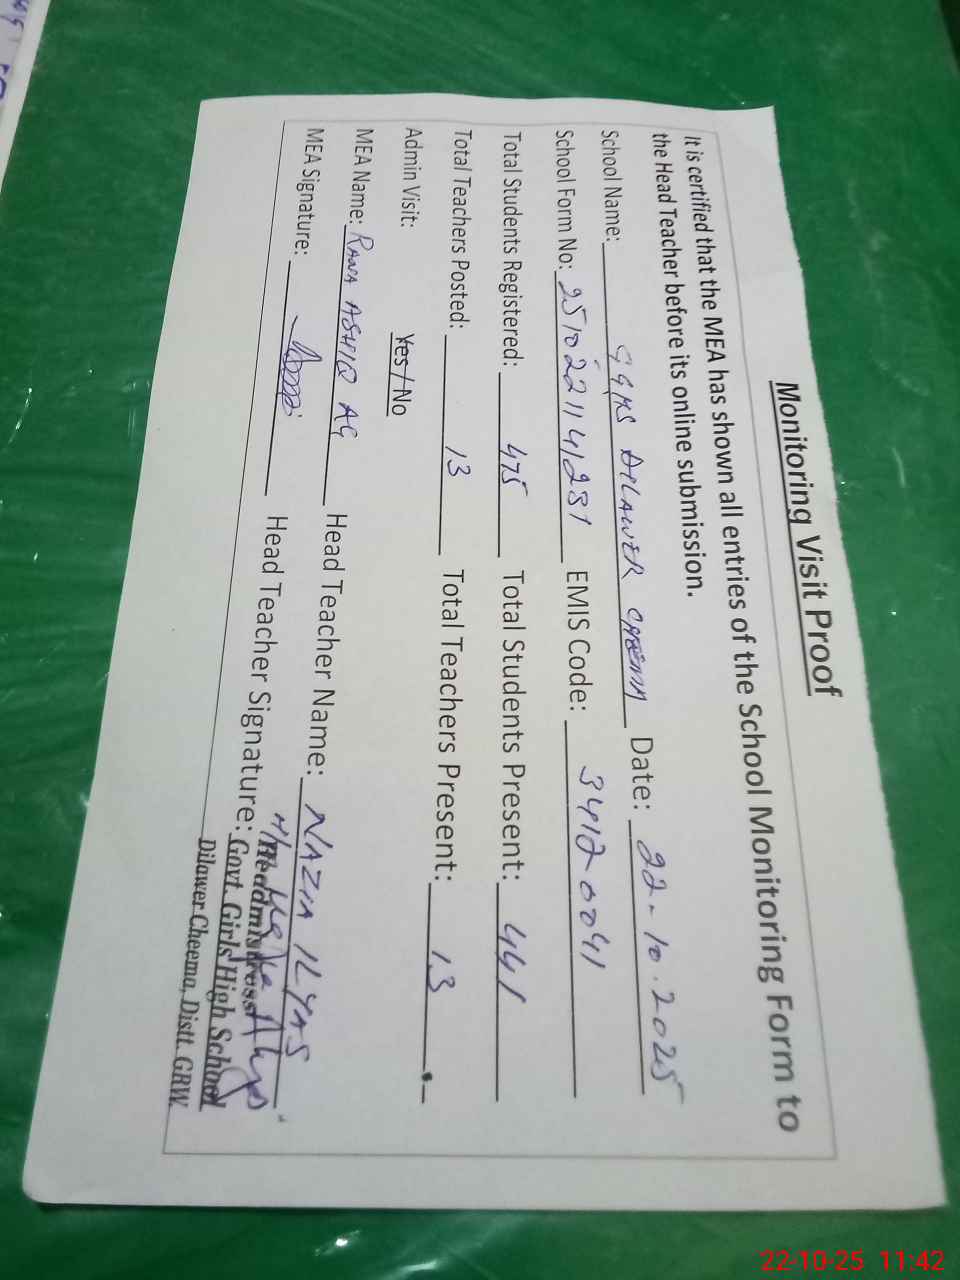 Monitoring Visit Proof
It is certified that the MEA has shown all entries of the School Monitoring Form to
the Head Teacher before its online submission.
School Name: GGHS DILAWER CHEEMA Date: 22-10.2025
School Form No: EMIS Code: 34120041
Total Students Registered: 475 Total Students Present: 441
Total Teachers Posted: 13 Total Teachers Present: 13
Admin Visit: Yes / No
MEA Name: RANA ASHIQ Head Teacher Name: NAZIA ILYAS
MEA Signature: Head Teacher Signature:
Headmistress
Govt. Girls High School
Dilawer Cheema, Distt. GRW.
22-10-25 11:42